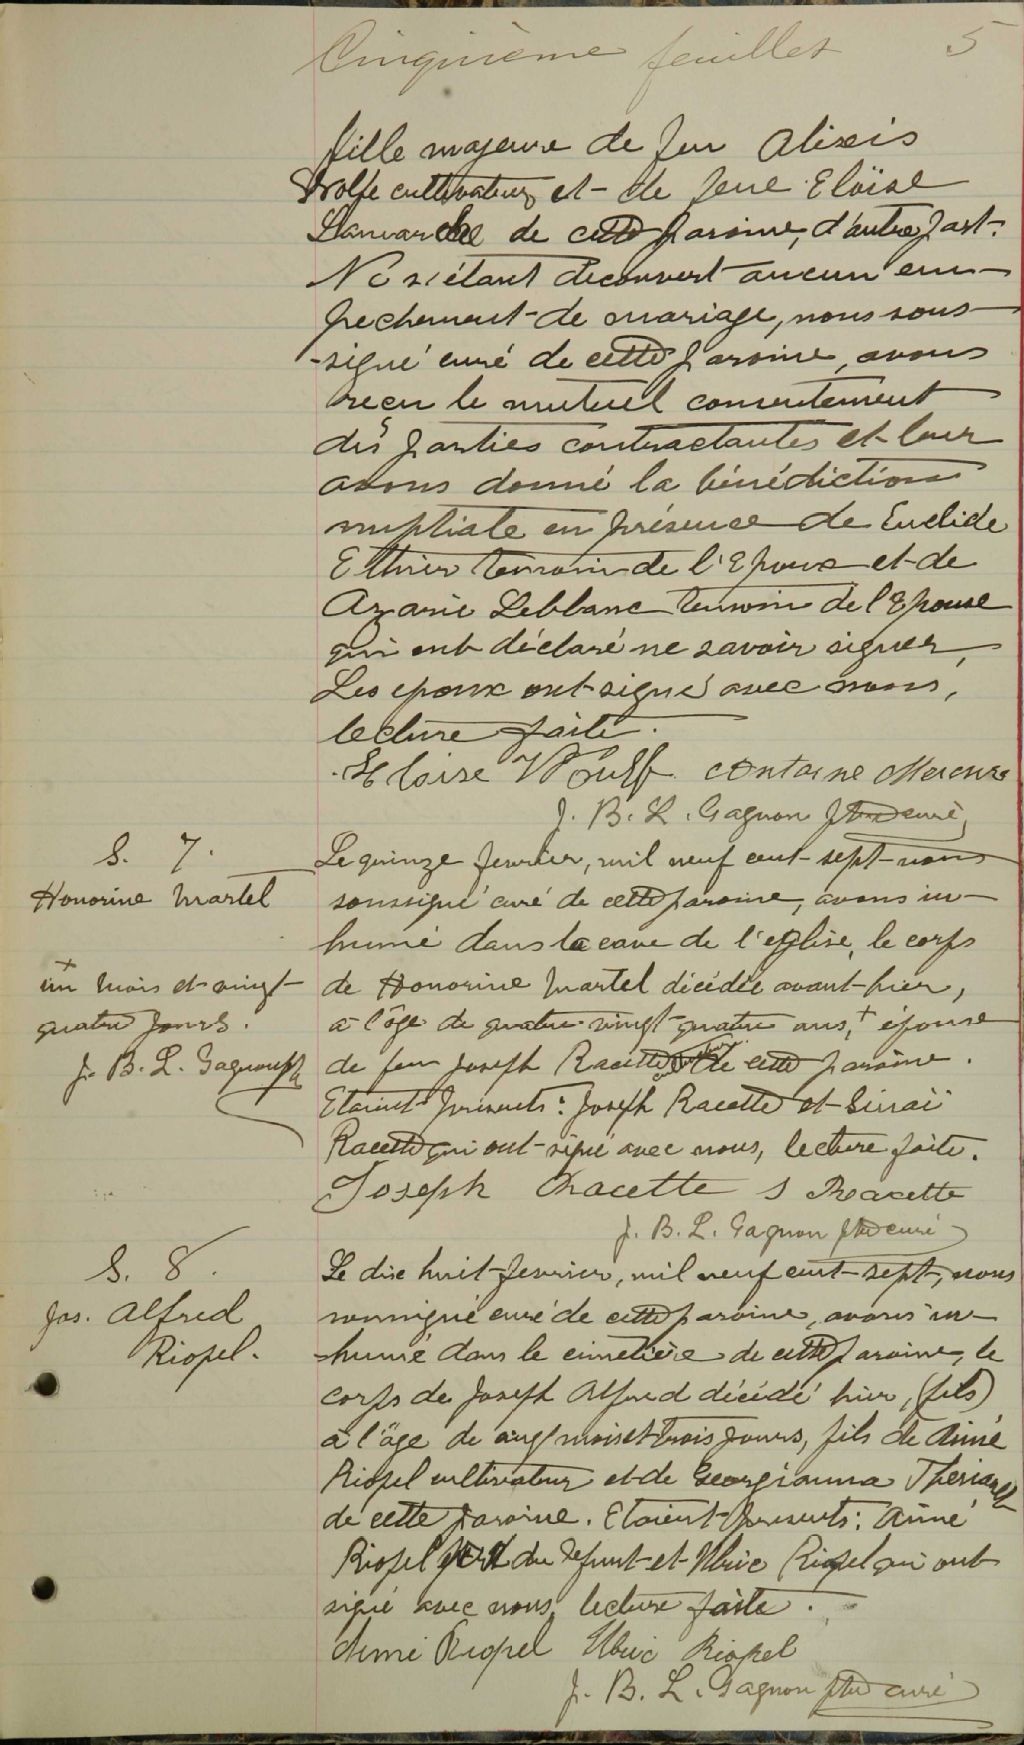 Cinquième feuillet 5
fille majeure de feu Alexis
Wolfe cultivateur et de feue Eloïse
de cette paroisse, d'autre part.
Ne s'étant decouvert aucun em-
pechement de mariage, nous sous-
-signé curé de cette paroisse, avons
reçu le mutuel consentement
des parties contractantes et leur
avons donné la bénédiction
nuptiale en présence de Euclide
Ethier temoin de l'Epoux et de
Azarie Leblanc temoin de l'Epouse
qui ont déclaré ne savoir signer,
Les epoux ont signé avec nous,
lecture faite.
Eloise Woulf Antoine
J. B. L. Gagnon ptre curé
S. 7.
Honorine Martel
+
un mois et vingt-
quatre jours.
J. B. L. Gagnon ptr
Le quinze fevrier, mil neuf cent-sept nous
soussigné curé de cette paroisse, avons in-
humé dans la cave de l'eglise, le corps
de Honorine Martel décédée avant-hier,
a l'âge de quatre-vingt-quatre ans,+ épouse
de feu Joseph Racette de cette paroisse.
Etaient presents: Joseph Racette et Sinaï
Racette qui ont signé avec nous, lecture faite.
Joseph Racette S Racette
J. B. L. Gagnon ptre curé
S. 8.
Jos. Alfred
Riopel.
Le dix huit fevrier, mil neuf cent-sept, nous
soussigné curé de cette paroisse, avons in-
-humé dans le cimetière de cette paroisse, le
corps de Joseph Alfred décédé hier, (fils)
à l'âge de cinq mois et trois jours, fils de Aimé
Riopel cultivateur et de Georgianna Theriault
de cette paroisse. Etaient presents: Aimé
Riopel père du defunt et Ulric Riopel qui ont
signé avec nous, lecture faite.
Aimé Riopel Ulric Riopel
J. B. L. Gagnon ptre curé